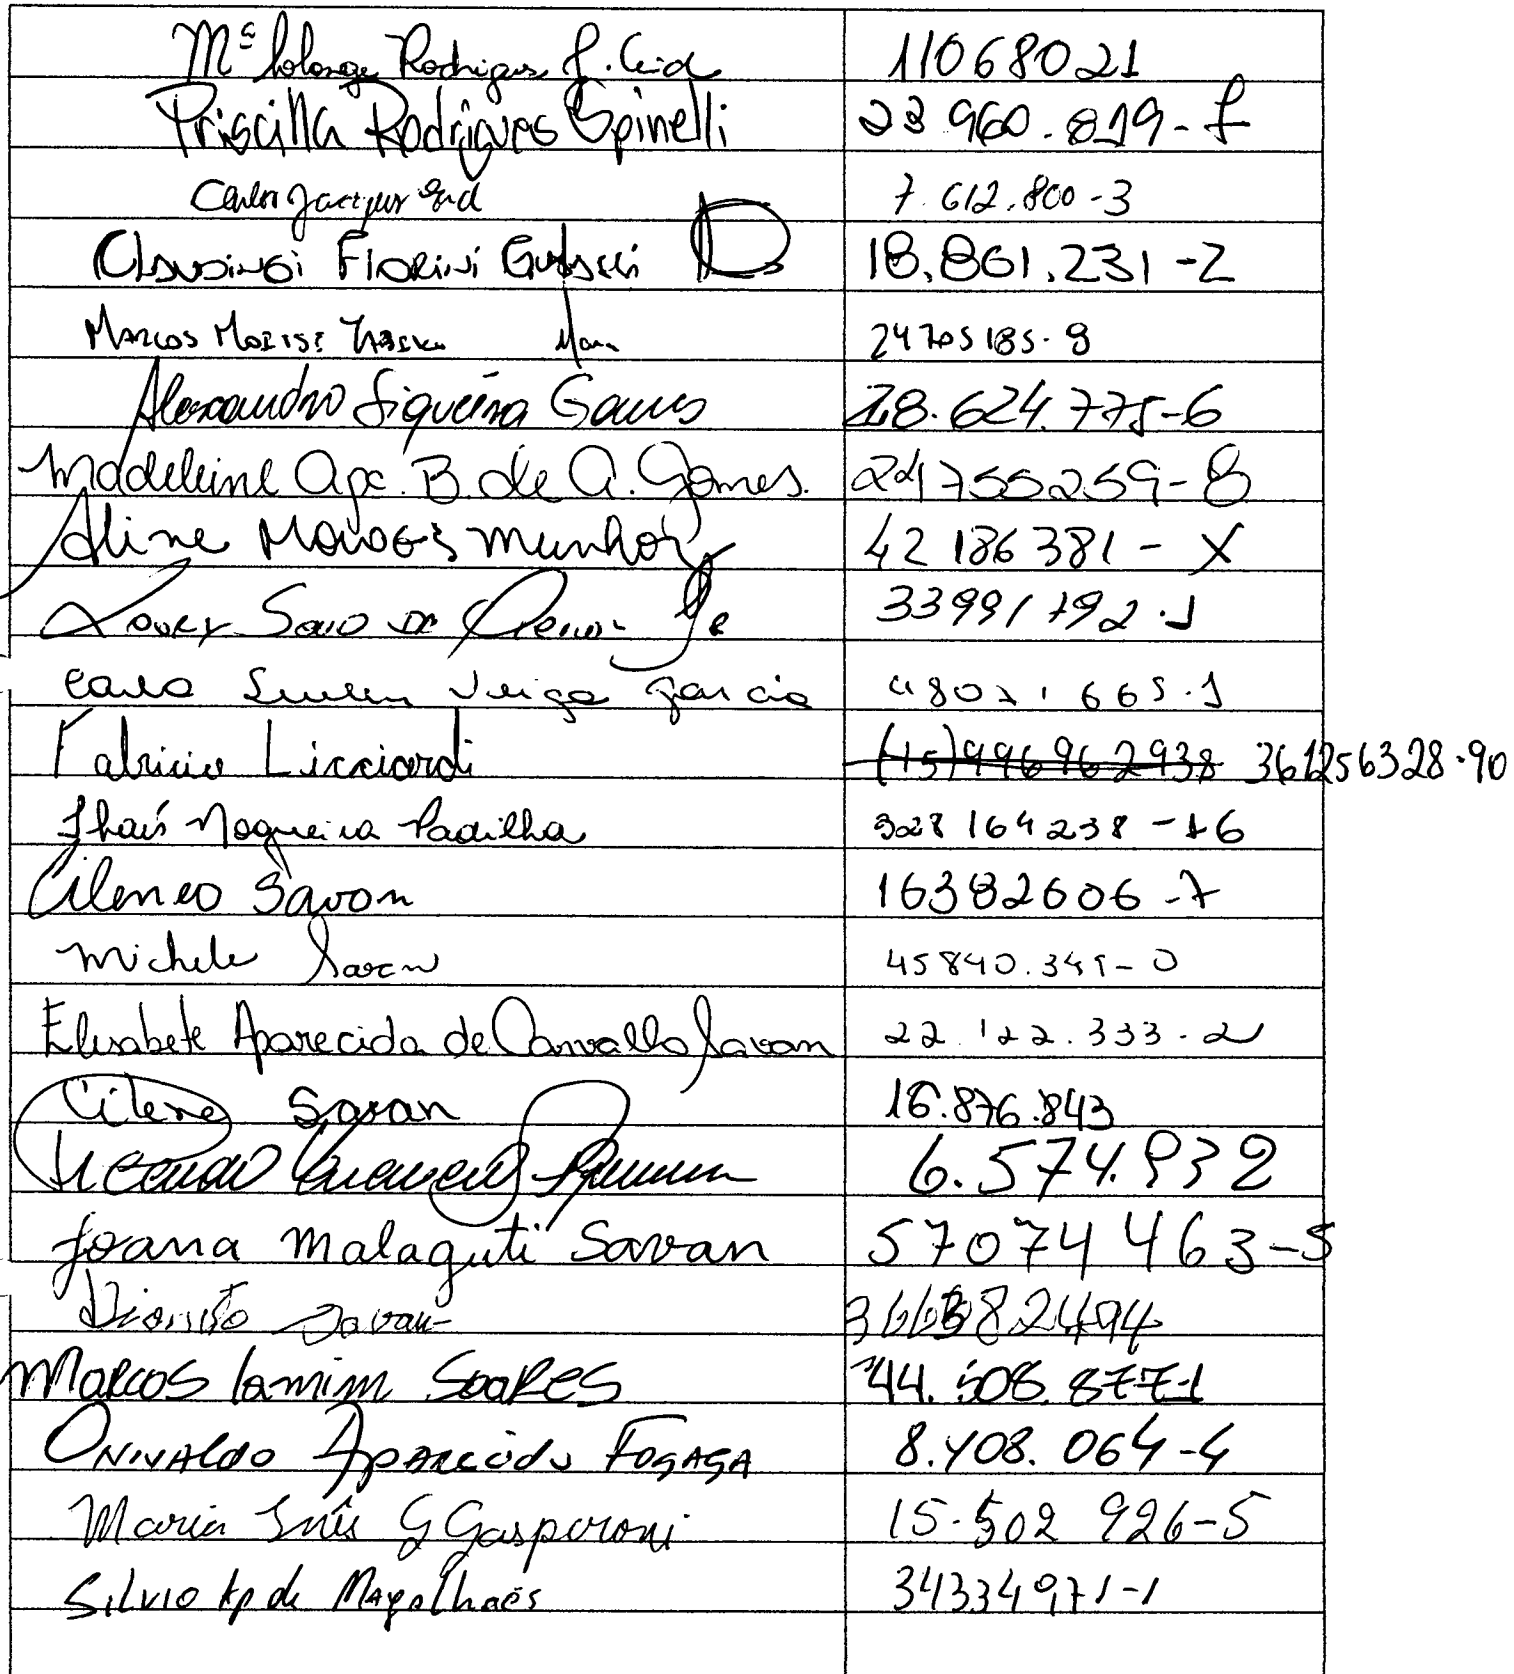 Mª Solange Rodrigues F. Cid 11068021
Priscilla Rodrigues Spinelli 23 960.819-f
Carlos Jacques Cid 7.612.800-3
Fiorini 18.861.231-2
Marcos 24705185-9
Alexandro Siqueira Gomes 28.624.775-6
Madeleine Apc. B. de A. Gomes. 241755259-8
Aline Moraes Munhoz 42 186 381 - X
33991792.1
Veiga Garcia
Fabricio Licciardi (15)996962938 361256328.90
Thaís Nogueira Padilha 328 164 238 -16
Cileneo Savon 16382606-7
Michele Savan 45840.341-0
Elisabete Aparecida de Carvalho Savan 22.122.333-2
Cilene Savan 16.876.843
6.574.932
Joana Malaguti Savan 57074463-5
Savan
Marcos Lamim Soares 44.508.877-1
Onivaldo Aparecido Fogaça 8.408.064-4
Maria Inês G Gasparoni 15.502 926-5
Silvio Ap de Magalhaes 34334971-1